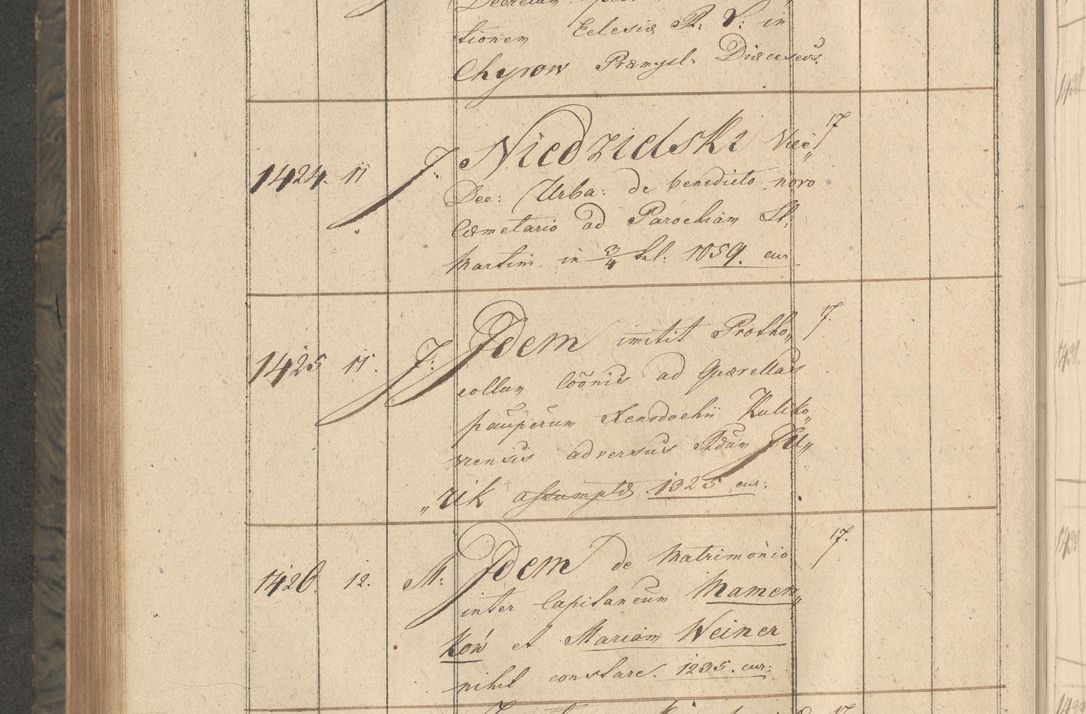 tionem Eclesiæ R. L: in
Chyrow Præmysl. Diæceseos.
1424. 11 J. Niedzielski Vice 17
Dec: Urba: de benedicto novo
Cæmetario ad Parochiam St.
Martini in 3/4 Sol. 1059. cur
1425 11. J: Idem imitit Protho„ 17.
collum Cöönis ad Quærellas
pauperum Xenodochii Kuliko„
viensis adversus Adam Ju„
„rik assumptæ. 1325. cur:
1426. 12. M: Idem de Matrimonio 17.
inter Capitaneum Mamen„
ków et Mariam Weiner
nihil constare. 1235. cur:
17